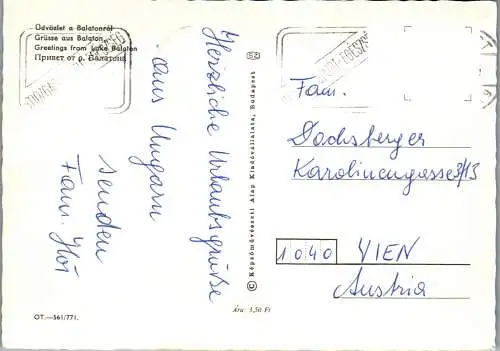 Üdvözlet a Balatonról
Grüsse aus Balaton
Greetings from Lake Balaton
Привет от р. Балатона
Herzliche Urlaubsgrüße
aus Ungarn
senden
Fam.
© Képzőművészeti Alap Kiadóvállalata, Budapest
Fam.
Dachsberger
Karolinengasse
1040 WIEN
Austria
Ára: 3,50 Ft
OT.—561/771.